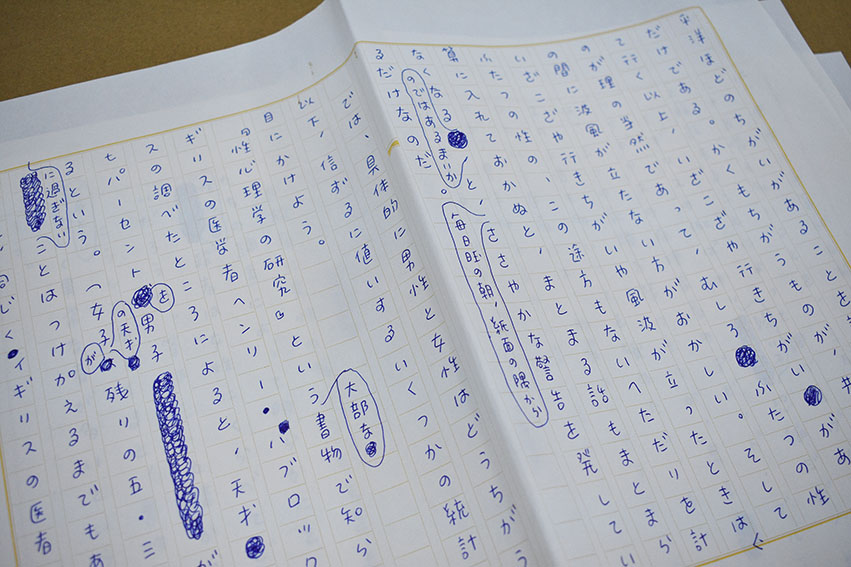 洋ほどのちがいがあることを、
だけである。かくもちがう
て行く以上、いざこざや行きちがい
のが理の当然であって、むしろふたつの性
の間に波風が立たない方がおかしい。そして
いざこざや行きちがいや風波が立ったときは
ふたつの性の、この途方もないへだたりを計
算に入れておかぬと、まとまる話もまとまら
なくなるのではあるまいかと、毎日曜の朝、紙面の隅からささやかな警告を発してい
るだけなのだ。
では、具体的に男性と女性はどうちがう
以下、信ずるに値するいくつかの統計
目にかけよう。
性心理学の研究』という大部な書物で知ら
ギリスの医学者ヘンリー・ハブロック
スの調べたところによると、天才
セパーセントを男子が
るという。(女子の天才が残りの五・三
に過ぎないことはつけかえるまでもあ
同じくイギリスの医者